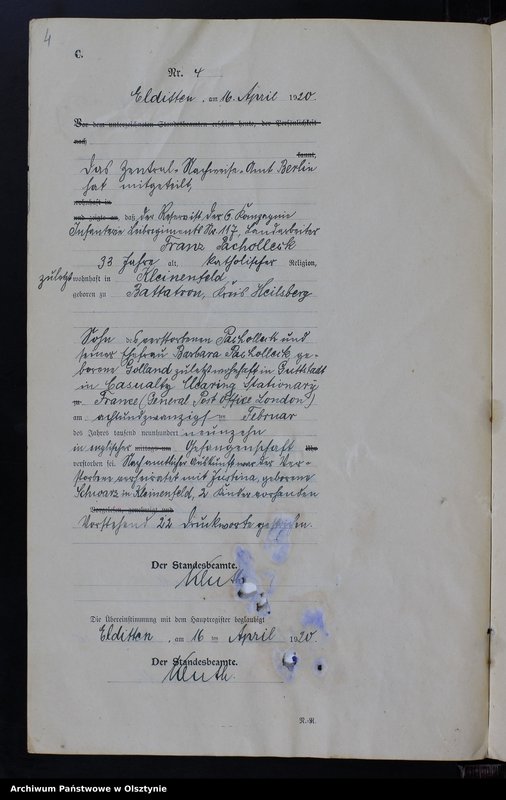 4
C.
Nr. 4
Elditten, am 16. April 1920.
Vor dem unterzeichneten Standesbeamten erschien heute, der Persönlichkeit
nach
kannt,
Das Zentral-Nachweise-Amt Berlin
hat mitgeteilt,
wohnhaft in
und zeigte an, daß der Reservist der 6. Kompagnie
Infanterie Leibregiments Nr. 117, Landarbeiter
Franz Pachollek
33 Jahre alt, katholischer Religion,
zuletzt wohnhaft in Kleinenfeld
geboren zu Battatron, Kreis Heilsberg
Sohn des verstorbenen Pachollek und
seiner Ehefrau Barbara Pachollek ge-
borene Golland zuletzt wohnhaft in Guttstadt
in Casualty Clearing Stationary
France (General Post Office London)
am achtundzwanzigst Februar
des Jahres tausend neunhundert neunzehn
in englischer mittags um Gefangenschaft
verstorben sei. Nach amtlicher Auskunft war der Ver-
storbene verheiratet mit Justina, geborene
Schwarz in Kleinenfeld, 2 Kinder vorhanden
Vorgelesen, genehmigt und
Vorstehend 22 Druckworte gestrichen.
Der Standesbeamte.
Kluth.
Die Übereinstimmung mit dem Hauptregister beglaubigt
Elditten, am 16 ten April 1920.
Der Standesbeamte.
Kluth.
Archiwum Państwowe w Olsztynie